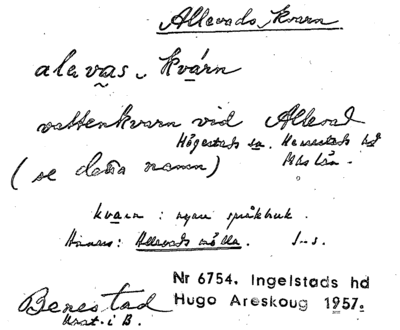 Allevads kvarn
alevas, kvarn
vattenkvarn vid Allevad
Högestads sn. Herrestads hd
Mlös län.
(se detta namn)
kvarn : nyare språkbruk.
Annars: Allevads mölla. I–s.
Nr 6754. Ingelstads hd
Hugo Areskoug 1957.
Benestad
Krat. i B.